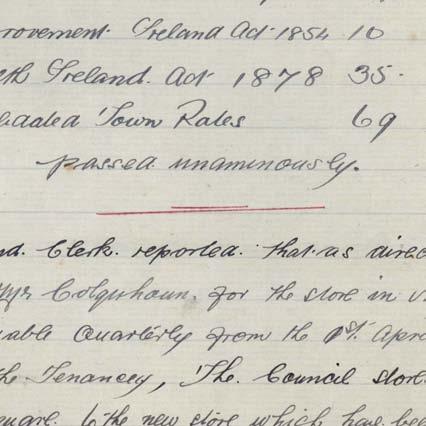 rovement Ireland Act 1854 10
th Ireland. Act 1878 35.
Town Rates 69
passed unaminously.
nd. Clerk. reported. that as direc
Colquhoun. for the store in
able Quarterly from the 1st. Apr
the Tenancey, The. Council store
to the new store which have bee